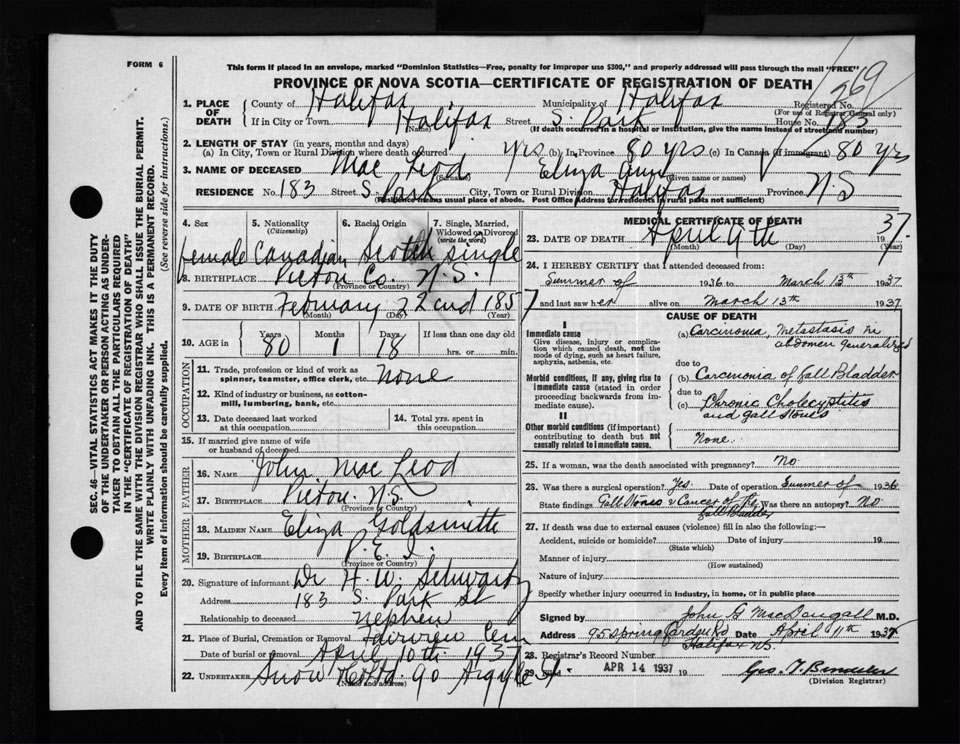 FORM 6
This form if placed in an envelope, marked "Dominion Statistics—Free, penalty for improper use $300," and properly addressed will pass through the mail "FREE"
PROVINCE OF NOVA SCOTIA—CERTIFICATE OF REGISTRATION OF DEATH
269
1. PLACE OF DEATH County of Halifax Municipality of Halifax Registered No.
(For use of Registrar General only)
If in City or Town Halifax Street S. Park House No. 183
(Name) (If death occurred in a hospital or institution, give the name instead of street and number)
2. LENGTH OF STAY (in years, months and days)
(a) In City, Town or Rural Division where death occurred yrs (b) In Province 80 yrs (c) In Canada (if immigrant) 80 yrs
3. NAME OF DECEASED Mac Leod Eliza Ann
(Surname) (Given name or names)
RESIDENCE No. 183 Street S. Park City, Town or Rural Division Halifax Province N.S
(Residence means usual place of abode. Post Office Address for residents in rural parts not sufficient)
4. Sex 5. Nationality (Citizenship) 6. Racial Origin 7. Single, Married, Widowed or Divorced (write the word)
female Canadian Scotch single
8. BIRTHPLACE Pictou Co. N.S.
(Province or Country)
9. DATE OF BIRTH February 22nd 1857
(Month) (Day) (Year)
10. AGE in Years Months Days If less than one day old
80 1 18 hrs. or min.
OCCUPATION
11. Trade, profession or kind of work as spinner, teamster, office clerk, etc. None
12. Kind of industry or business, as cotton-mill, lumbering, bank, etc.
13. Date deceased last worked at this occupation
14. Total yrs. spent in this occupation
15. If married give name of wife or husband of deceased
FATHER
16. NAME John Mac Leod
17. BIRTHPLACE Pictou. N.S.
(Province or Country)
MOTHER
18. MAIDEN NAME Eliza Goldsmith
19. BIRTHPLACE P.E.I.
(Province or Country)
20. Signature of informant Dr H. W. Schwartz
Address 183 S. Park St
Relationship to deceased Nephew
21. Place of Burial, Cremation or Removal Fairview Cem
Date of burial or removal April 10th 1937
22. UNDERTAKER Snow Co Ltd. 90 Argyle St.
(Name and address)
MEDICAL CERTIFICATE OF DEATH
23. DATE OF DEATH April 9th 1937.
(Month) (Day) (Year)
24. I HEREBY CERTIFY that I attended deceased from:
Summer of 1936 to March 13th 1937
and last saw her alive on March 13th 1937.
CAUSE OF DEATH
I
Immediate cause
Give disease, injury or complication which caused death, not the mode of dying, such as heart failure, asphyxia, asthenia, etc.
(a) Carcinoma, Metastasis in abdomen generalized
due to
Morbid conditions, if any, giving rise to immediate cause (stated in order proceeding backwards from immediate cause).
(b) Carcinoma of Gall Bladder
due to
(c) Chronic Cholecystitis and Gall Stones
II
Other morbid conditions (if important) contributing to death but not causally related to immediate cause.
None.
25. If a woman, was the death associated with pregnancy? No.
26. Was there a surgical operation? Yes. Date of operation Summer of 1936
State findings Gall Stones & Cancer of the Gall Bladder Was there an autopsy? No
27. If death was due to external causes (violence) fill in also the following:—
Accident, suicide or homicide? Date of injury 19
(State which)
Manner of injury
(How sustained)
Nature of injury
Specify whether injury occurred in industry, in home, or in public place
Signed by John G MacDougall M.D.
Address 95 Spring Garden Rd Halifax N.S. Date April 11th 1937.
28. Registrar's Record Number
29. Filed APR 14 1937 19
(Division Registrar)
SEC. 46—VITAL STATISTICS ACT MAKES IT THE DUTY
OF THE UNDERTAKER OR PERSON ACTING AS UNDER-
TAKER TO OBTAIN ALL THE PARTICULARS REQUIRED
IN THE "CERTIFICATE OF REGISTRATION OF DEATH"
AND TO FILE THE SAME WITH THE DIVISION REGISTRAR WHO SHALL ISSUE THE BURIAL PERMIT.
WRITE PLAINLY WITH UNFADING INK. THIS IS A PERMANENT RECORD.
Every item of information should be carefully supplied. (See reverse side for instructions.)